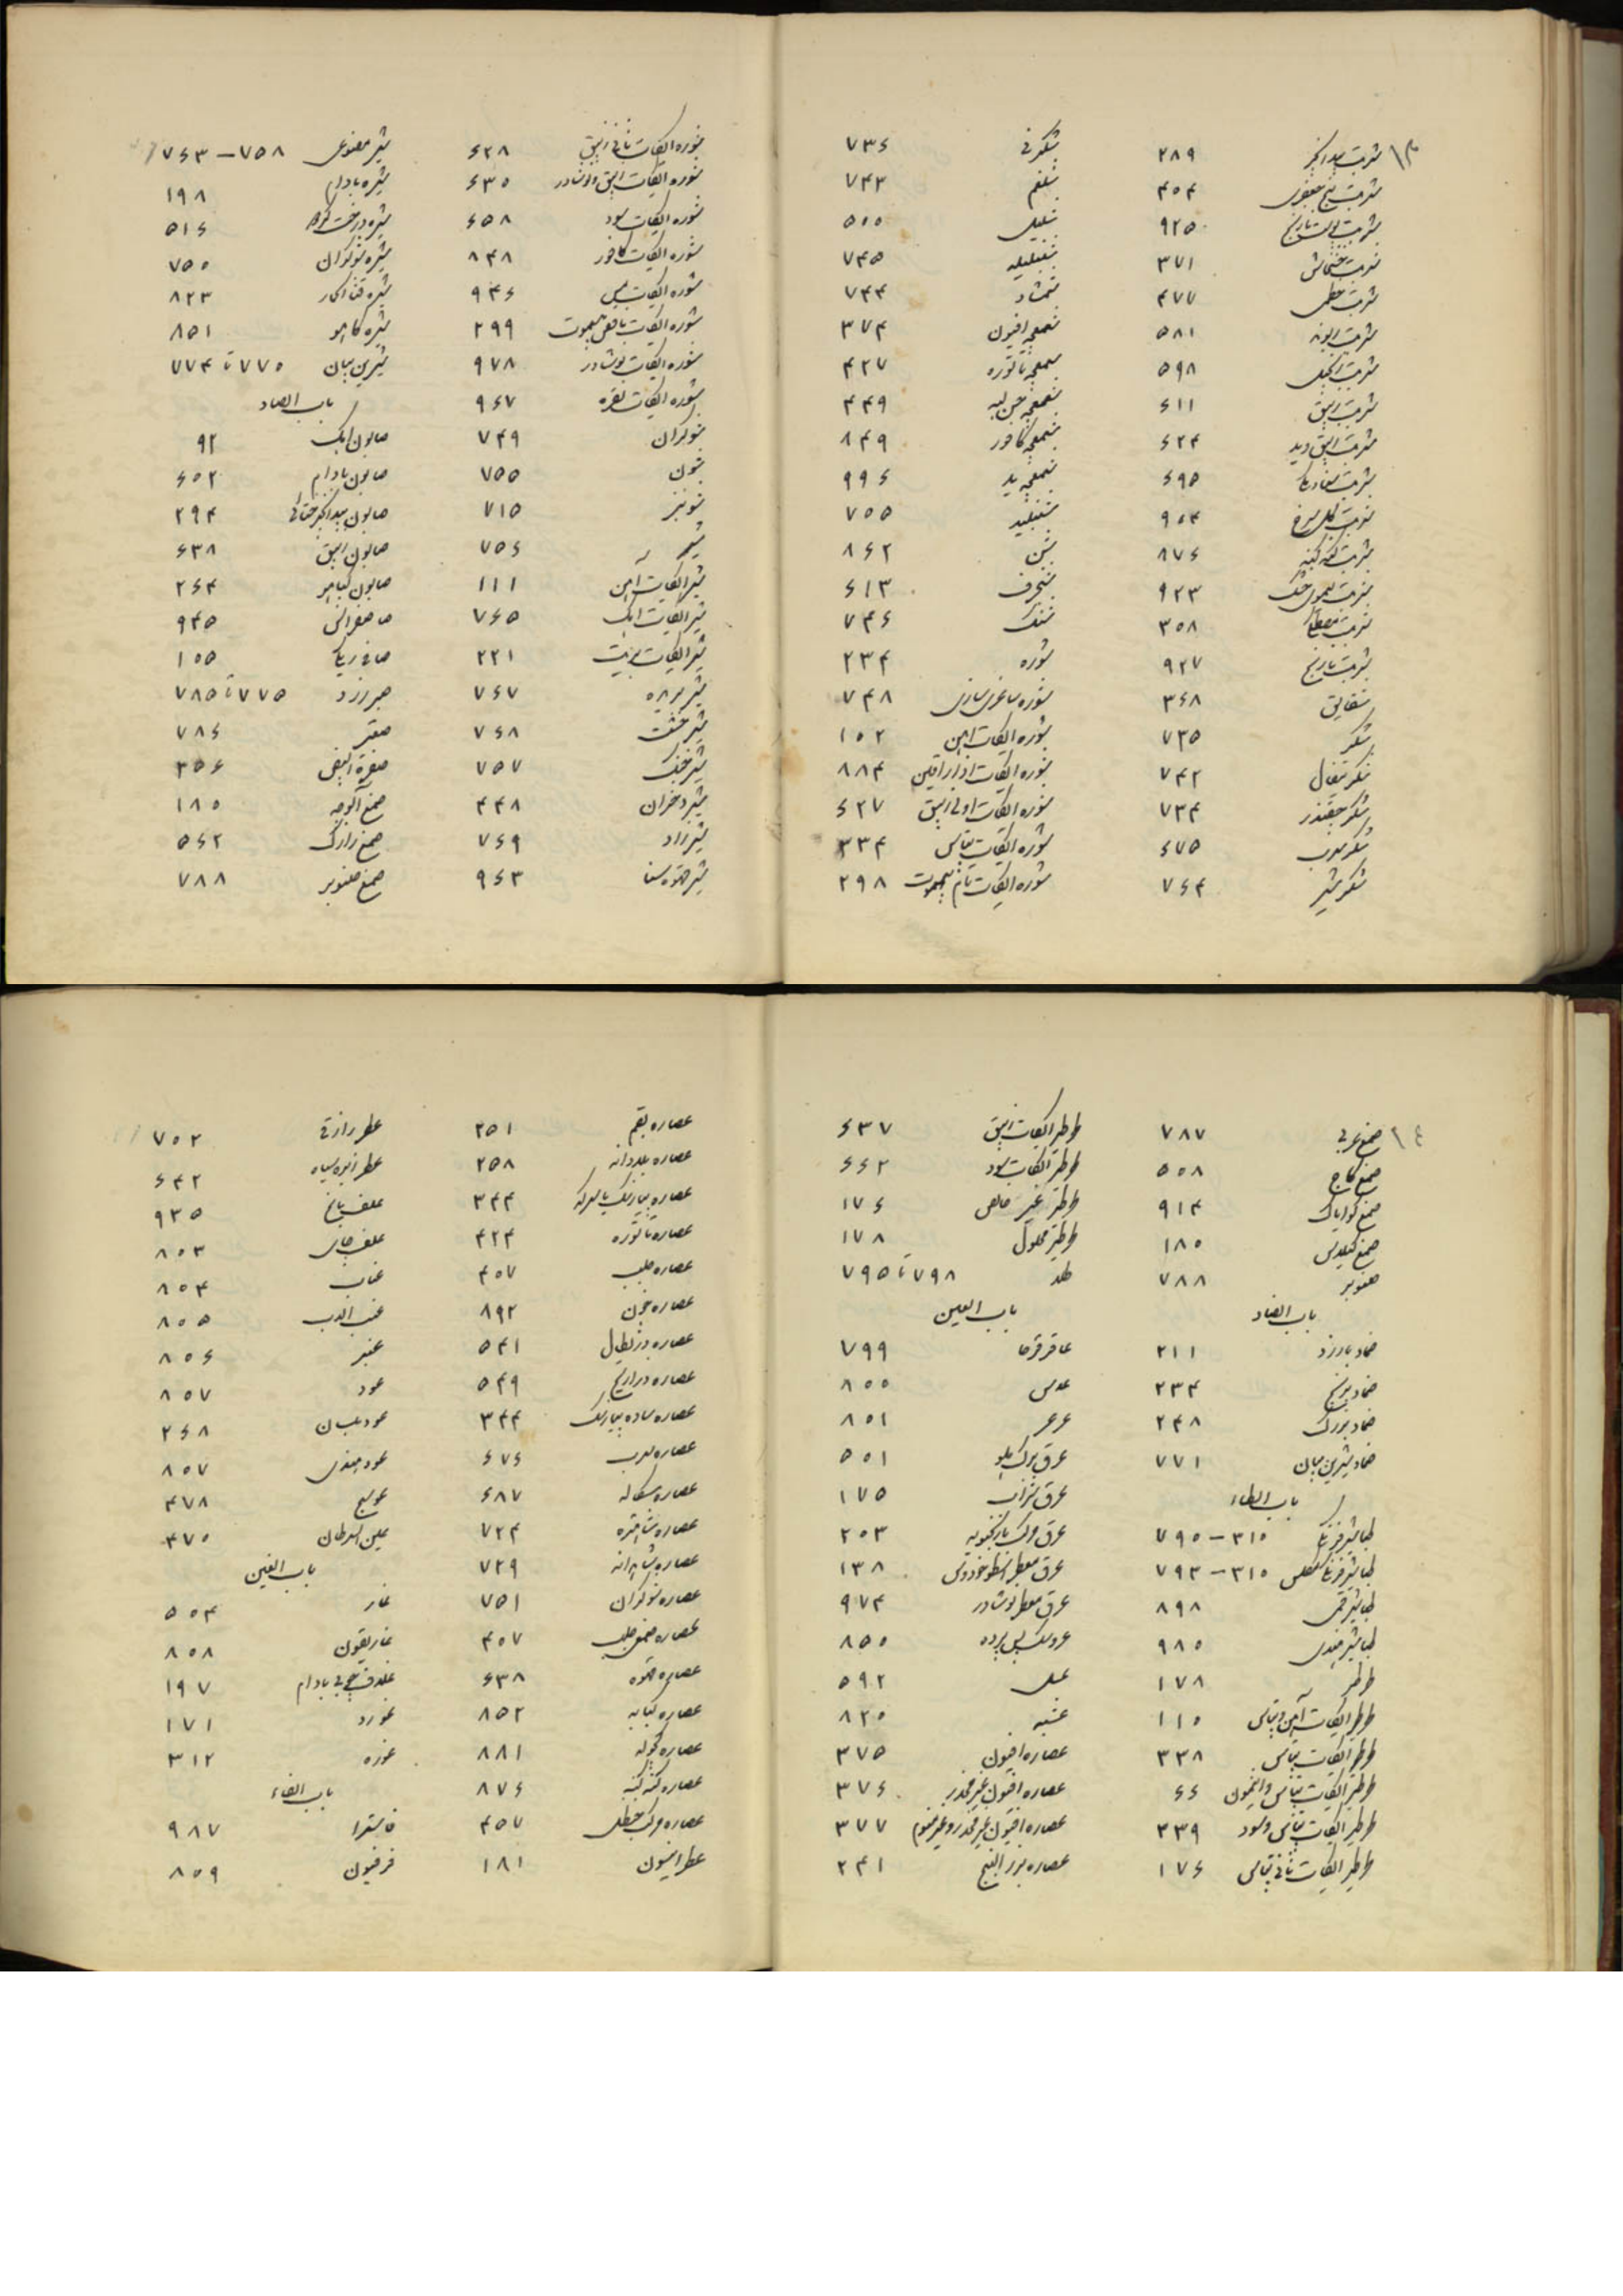 ۱۳
شربت بیدانجیر ۲۸۹
شربت پنج جعفری ۴۰۴
شربت پوست نارنج ۹۲۵
شربت خشخاش ۳۷۱
شربت خطمی ۴۷۷
شربت ۵۸۱
شربت زنجبیل ۵۹۸
شربت زیبق ۶۱۱
شربت زیبق ۶۲۴
شربت ۶۹۵
شربت گل سرخ ۹۰۴
شربت کنه کنه ۸۷۶
شربت لیموی خشک ۹۲۳
شربت ۳۰۸
شربت نارنج ۹۲۷
شقایق ۳۶۸
شکر ۷۳۵
شکر تیغال ۷۴۲
شکر چقندر ۷۳۴
شکر سرب ۶۷۵
شکر شیر ۷۶۴
شکرفی ۷۳۶
شلغم ۷۴۳
شلیل ۵۰۰
شنبلیله ۷۴۵
شمشاد ۷۴۴
شمعچه افیون ۳۷۴
شمعچه تاتوره ۴۲۷
شمعچه حسن لبه ۴۴۹
شمعچه کافور ۸۴۹
شمعچه ید ۹۹۶
شنبلید ۷۵۵
شن ۸۶۲
شنجرف ۶۱۳
شنگ ۷۴۶
شوره ۲۳۴
شوره ساغری سازی ۷۴۸
شوره الکیات آهن ۱۰۲
شوره الکیات ۸۸۴
شوره الکیات اولی زیبق ۶۲۷
شوره الکیات پتاس ۳۳۴
شوره الکیات بیسموت ۲۹۸
شوره الکیات ثانی زیبق ۶۲۸
شوره الکیات زیبق و نوشادر ۶۳۰
شوره الکیات سود ۶۵۸
شوره الکیات کافور ۸۴۸
شوره الکیات مس ۹۴۶
شوره الکیات ناقص بیسموت ۲۹۹
شوره الکیات نوشادر ۹۷۸
شوره الکیات نقره ۹۶۷
شوکران ۷۴۹
شون ۷۵۵
شونیز ۷۱۵
۷۵۶
شیر الکیات آهن ۱۱۱
شیر الکیات آهک ۷۶۵
شیر الکیات ۲۲۱
شیر بریده ۷۶۷
شیر خشت ۷۶۸
شیر خشک ۷۵۷
شیر دختران ۴۴۸
شیرزاد ۷۶۹
شیر قهوه سنا ۹۶۳
شیر مصنوعی ۷۵۸ – ۷۶۳
شیره بادام ۱۹۸
شیره درخت ۵۱۶
شیره شوکران ۷۵۰
شیره قثاء الحمار ۸۲۳
شیره کاهو ۸۵۱
شیرین بیان ۷۷۰ تا ۷۷۴
باب الصاد
صابون آهک ۹۲
صابون بادام ۶۰۲
صابون بیدانجیر ختائی ۲۹۴
صابون زیبق ۶۳۸
صابون ۲۶۴
۹۴۵
۱۰۵
صبر زرد ۷۷۵ تا ۷۸۵
صعتر ۷۸۶
صفرة البیض ۳۵۶
صمغ آلوچه ۱۸۰
صمغ زارک ۵۶۲
صمغ صنوبر ۷۸۸
۱٤
صمغ عربی ۷۸۷
صمغ کاج ۵۰۸
صمغ گوایاک ۹۱۴
صمغ گیلاس ۱۸۰
صنوبر ۷۸۸
باب الضاد
ضماد بارزد ۲۱۱
ضماد برنج ۲۳۴
ضماد بزرک ۲۴۸
ضماد شیرین بیان ۷۷۱
باب الطاء
طباشیر فرنگی ۳۱۰ – ۷۹۰
طباشیر فرنگی ۳۱۰ – ۷۹۳
طباشیر قمی ۸۹۸
طباشیر هندی ۹۸۰
طرطر ۱۷۸
طرطر الکیات آهن و پتاس ۱۱۰
طرطر الکیات پتاس ۳۳۸
طرطر الکیات پتاس و انتیمون ۶۶
طرطر الکیات پتاس و سود ۳۳۹
طرطر الکیات ثانی پتاس ۱۷۶
طرطر الکیات زیبق ۶۳۷
طرطر الکیات سود ۶۶۲
طرطر غیر خالص ۱۷۶
طرطر محلول ۱۷۸
طلا ۷۹۵ تا ۷۹۸
باب العین
عاقرقرحا ۷۹۹
عدس ۸۰۰
عرعر ۸۰۱
عرق برگ هلو ۵۰۱
عرق شراب ۱۷۵
عرق مرکب بادرنجبویه ۲۰۳
عرق معطر اسطوخودوس ۱۳۸
عرق معطر نوشادر ۹۷۴
عروسک پس پرده ۸۵۰
عسل ۵۹۲
عشبه ۸۲۰
عصاره افیون ۳۷۵
عصاره افیون غیر مخدر ۳۷۶
عصاره افیون غیر مخدر و غیر منوم ۳۷۷
عصاره بزر البنج ۲۴۱
عصاره بقم ۲۵۱
عصاره بلادانه ۲۵۸
عصاره پیازنگ با سرکه ۳۴۴
عصاره تاتوره ۴۲۴
عصاره جلب ۴۰۷
عصاره خون ۸۹۲
عصاره دژیطال ۵۴۱
عصاره دراریح ۵۴۹
عصاره ساده پیازنگ ۳۴۴
عصاره سرب ۶۷۶
عصاره سکاله ۶۸۷
عصاره شاهتره ۷۲۴
عصاره شاهدانه ۷۲۹
عصاره شوکران ۷۵۱
عصاره صمغی جلب ۴۰۷
عصاره قهوه ۶۳۸
عصاره کبابه ۸۵۲
عصاره کچوله ۸۸۱
عصاره کنه کنه ۸۷۶
عصاره مرکب حنظل ۴۵۷
عطر انیسون ۱۸۱
عطر رازقی ۷۰۲
عطر زیره سیاه ۶۴۲
علف باغ ۹۳۵
علف چای ۸۰۳
عناب ۸۰۴
عنب الدب ۸۰۵
عنبر ۸۰۶
عود ۸۰۷
عود بلسان ۲۶۸
عود هندی ۸۰۷
عوسج ۴۷۸
عین السرطان ۴۷۰
باب الغین
غار ۵۰۴
غاریقون ۸۰۸
غلاف چوبی بادام ۱۹۷
غورد ۱۷۱
غوزه ۳۱۲
باب الفاء
فاشرا ۹۸۷
فرفیون ۸۰۹